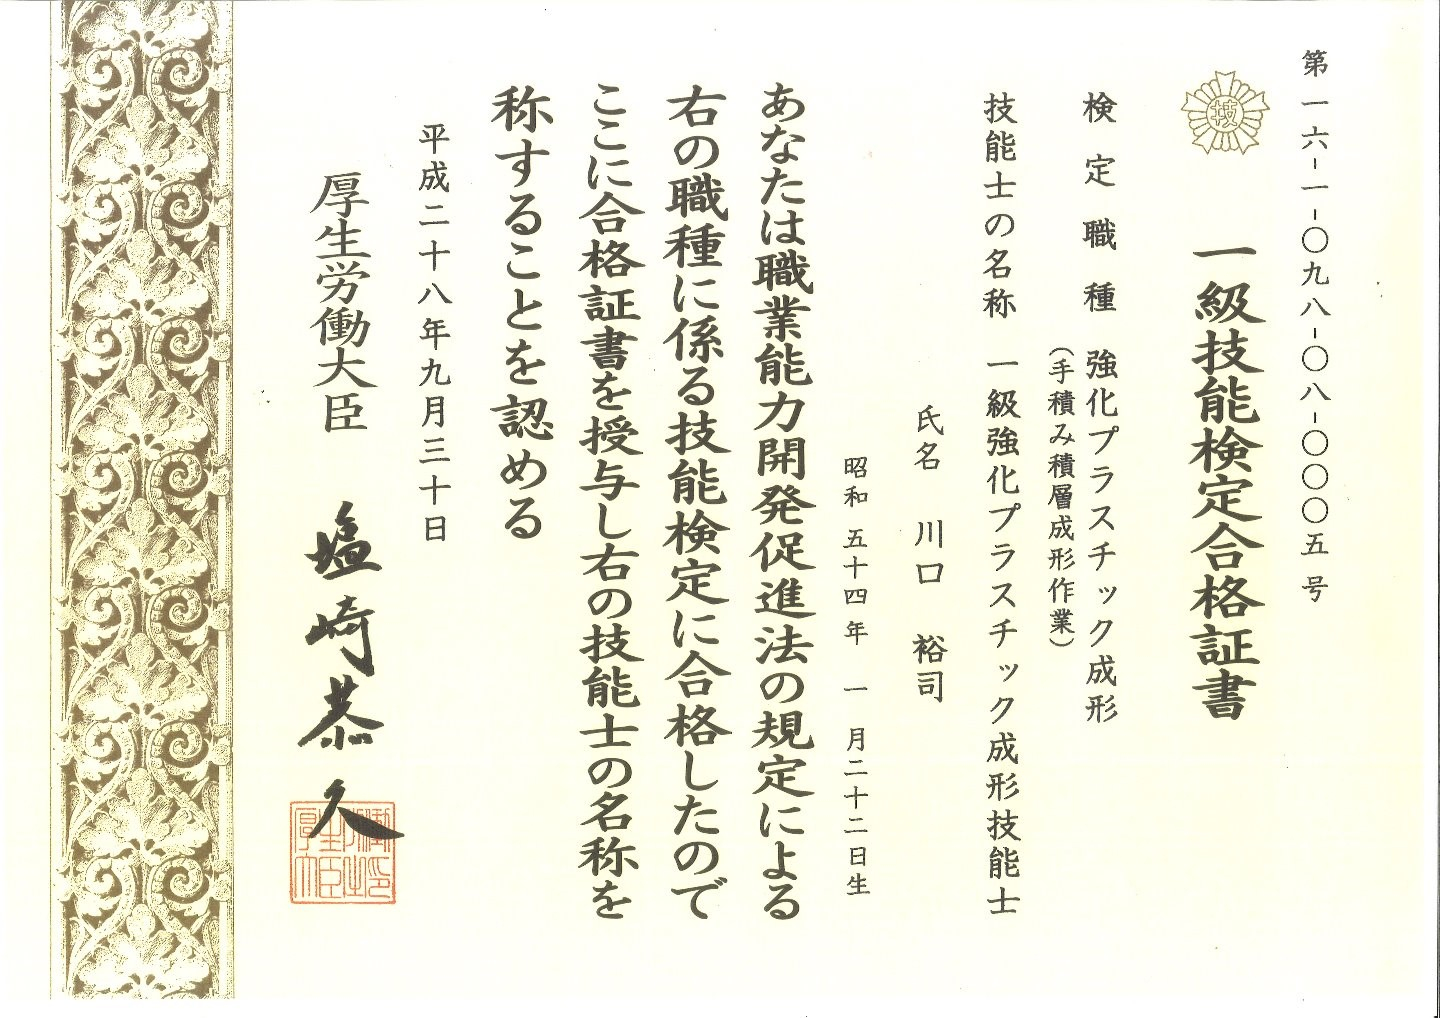 第一六-一-〇九八-〇八-〇〇〇五号
技
一級技能検定合格証書
検定職種 強化プラスチック成形
(手積み積層成形作業)
技能士の名称 一級強化プラスチック成形技能士
氏名 川口 裕司
昭和 五十四年 一月二十二日生
あなたは職業能力開発促進法の規定による
右の職種に係る技能検定に合格したので
ここに合格証書を授与し右の技能士の名称を
称することを認める
平成二十八年九月三十日
厚生労働大臣 塩崎恭久